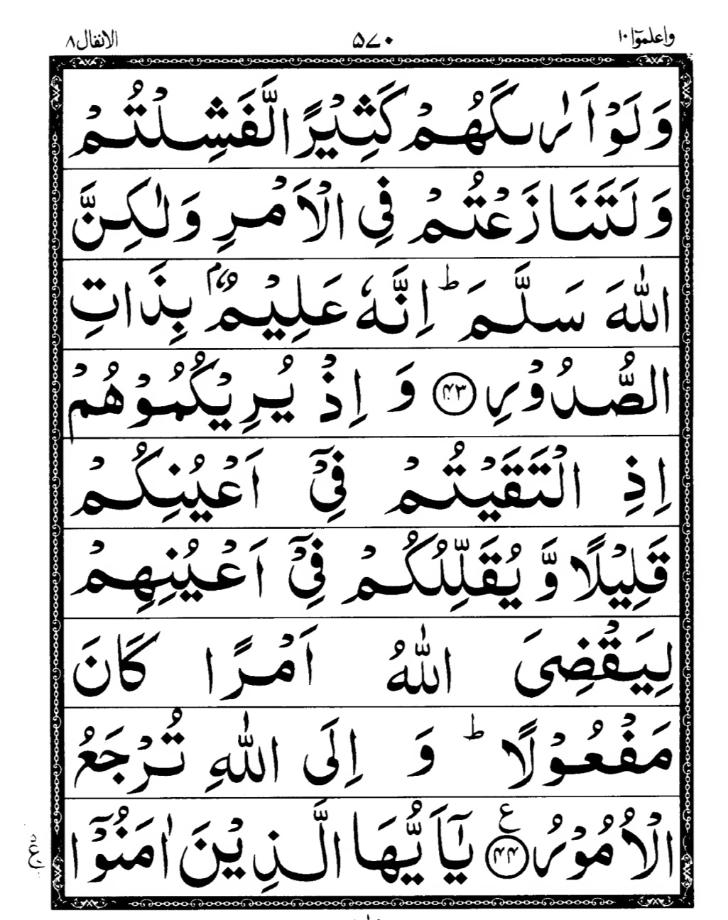 واعلموٓا ۱۰ ۵۷۰ الانفال ۸
وَلَوْ اَرٰىكَهُمْ كَثِيْرًا لَّفَشِلْتُمْ
وَلَتَنَازَعْتُمْ فِی الْاَمْرِ وَلٰكِنَّ
اللّٰهَ سَلَّمَ ؕ اِنَّهٗ عَلِيْمٌۢ بِذَاتِ
الصُّدُوْرِ ﴿۴۳﴾ وَ اِذْ يُرِيْكُمُوْهُمْ
اِذِ الْتَقَيْتُمْ فِیْۤ اَعْيُنِكُمْ
قَلِيْلًا وَّ يُقَلِّلُكُمْ فِیْۤ اَعْيُنِهِمْ
لِيَقْضِیَ اللّٰهُ اَمْرًا كَانَ
مَفْعُوْلًا ؕ وَ اِلَی اللّٰهِ تُرْجَعُ
الْاُمُوْرُ ﴿۴۴﴾ ع يٰۤاَيُّهَا الَّذِيْنَ اٰمَنُوْۤا